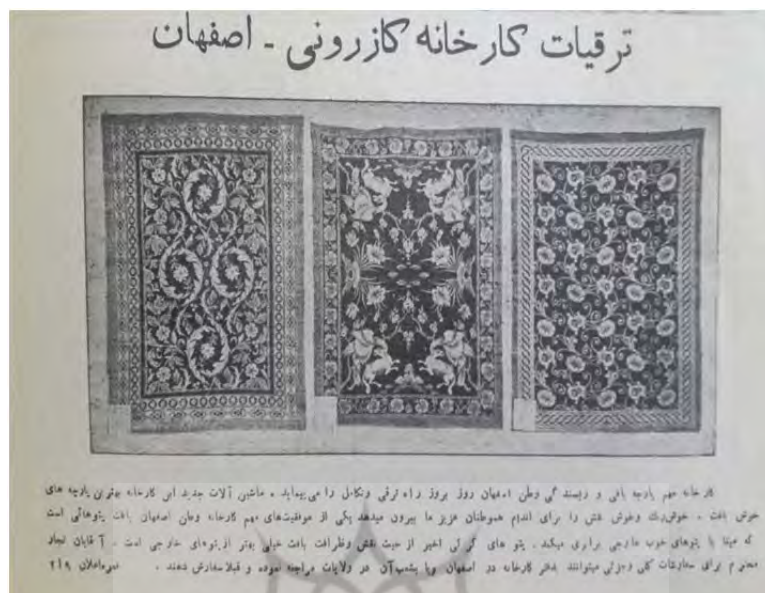 ترقیات کارخانه کازرونی - اصفهان
کارخانه مهم پارچه بافی و ریسندگی وطن اصفهان روز بروز راه ترقی وتکامل را می پیماید . ماشین آلات جدید این کارخانه بهترین پارچه های
خوش بافت . خوش رنك وخوش نقش را برای اندام هموطنان عزیز ما بیرون میدهد یکی از موفقیت‌های مهم کارخانه وطن اصفهان بافت پتوهائی است
که با پتوهای خوب خارجی برابری میکند . پتو های اخیر از حیث نقش وظرافت بافت خیلی بهتر ازپتوهای خارجی است . آقایان تجار
محترم برای سفارشات کلی وجزئی میتوانند بدفتر کارخانه در اصفهان ویا بشعب آن در ولایات مراجعه نموده و قبلا سفارش دهند . ۲۱۹